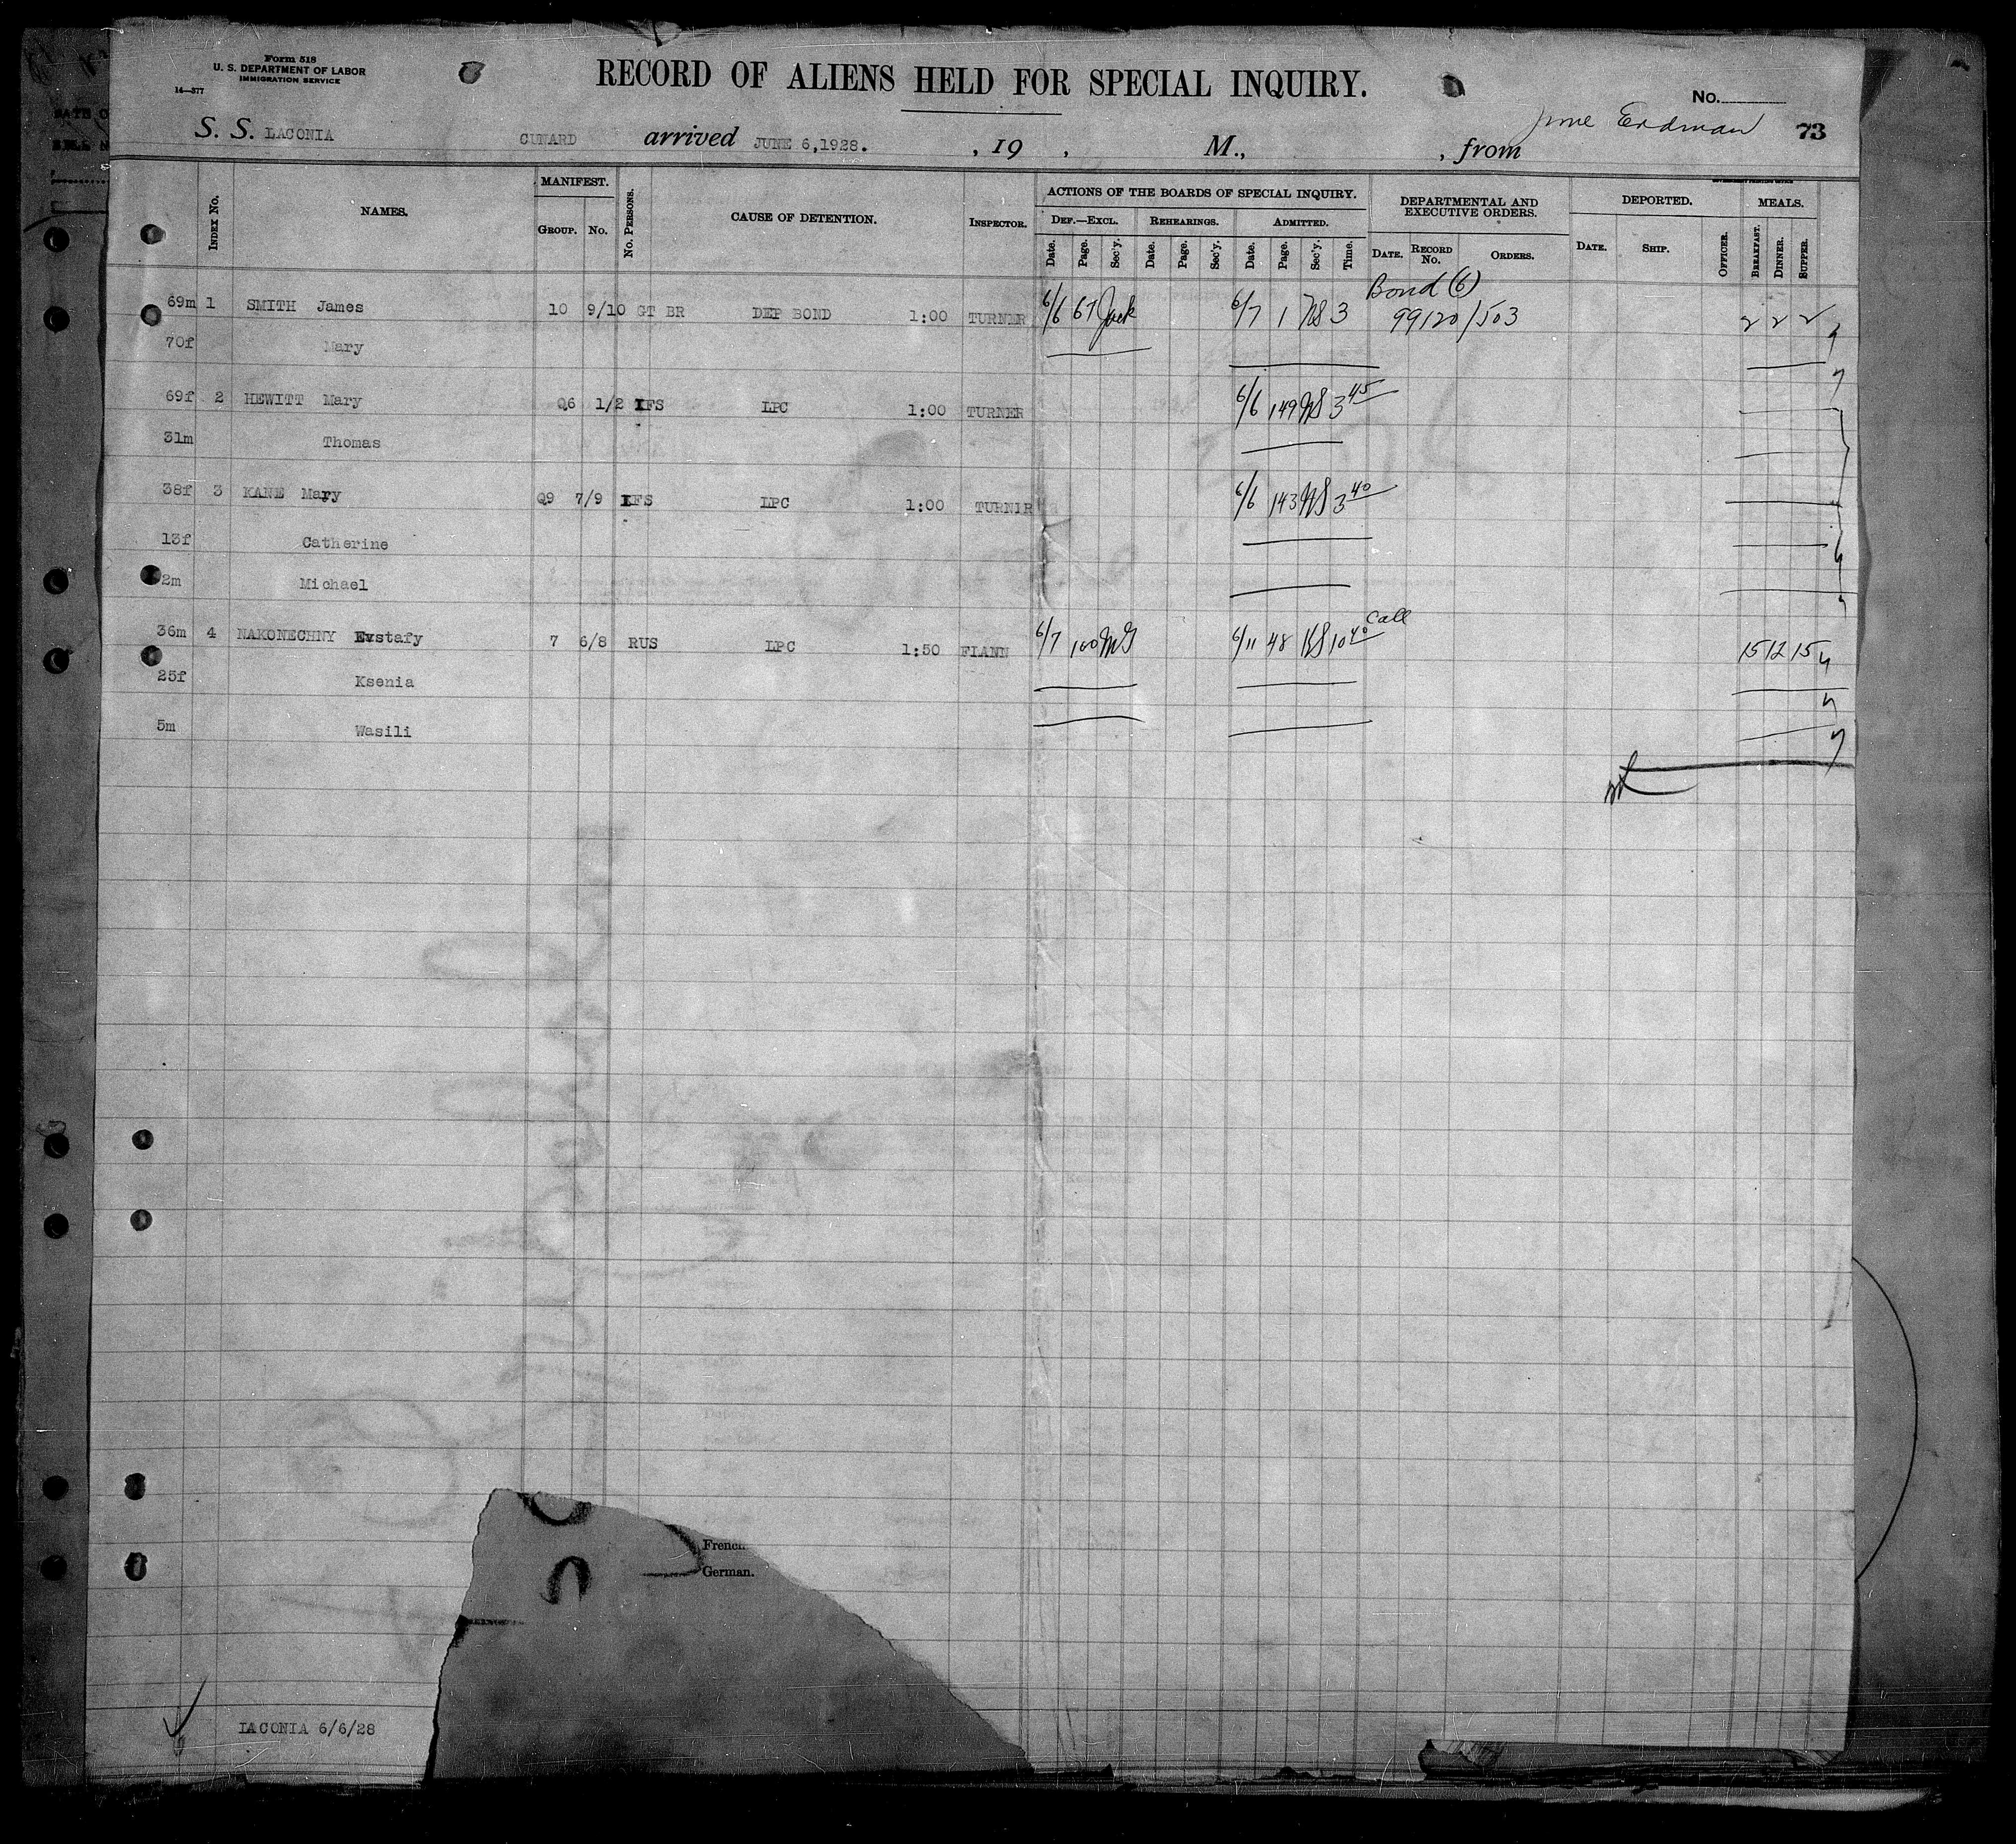 Form 518
U. S. DEPARTMENT OF LABOR
IMMIGRATION SERVICE
14—377
RECORD OF ALIENS HELD FOR SPECIAL INQUIRY.
No.
73
S. S. LACONIA CUNARD arrived JUNE 6,1928. , 19 , M., , from Erdman
INDEX No. NAMES. MANIFEST. GROUP. No. No. PERSONS. CAUSE OF DETENTION. INSPECTOR. ACTIONS OF THE BOARDS OF SPECIAL INQUIRY. DEPARTMENTAL AND EXECUTIVE ORDERS. DEPORTED. MEALS.
DEF.—EXCL. REHEARINGS. ADMITTED.
Date. Page. Sec'y. Date. Page. Sec'y. Date. Page. Sec'y. Time. DATE. RECORD No. ORDERS. DATE. SHIP. OFFICER. BREAKFAST. DINNER. SUPPER.
Bond (6)
69m 1 SMITH James 10 9/10 GT BR DEP BOND 1:00 TURNER 6/6 67 Jack 6/7 1 NS 3 99120/503 2 2 2
70f Mary
69f 2 HEWITT Mary Q6 1/2 IFS LPC 1:00 TURNER 6/6 149 NS 3 45
31m Thomas
38f 3 KANE Mary Q9 7/9 IFS LPC 1:00 TURNIR 6/6 143 NS 3 40
13f Catherine
2m Michael
36m 4 NAKONECHNY Evstafy 7 6/8 RUS LPC 1:50 FLANN 6/7 100 6/11 48 10 40 Call 15 12 15
25f Ksenia
5m Wasili
French.
German.
LACONIA 6/6/28